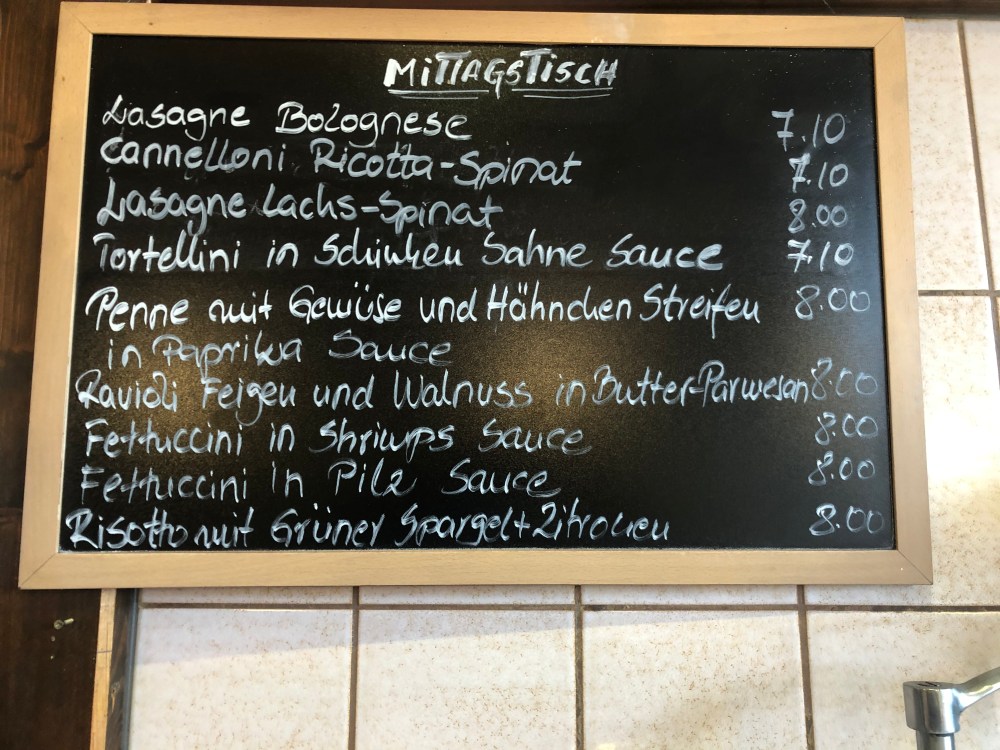 MITTAGSTISCH
Lasagne Bolognese 7.10
Cannelloni Ricotta-Spinat 7.10
Lasagne Lachs-Spinat 8.00
Tortellini in Schinken Sahne Sauce 7.10
Penne mit Gewüse und Hähnchen Streifen 8.00
in Paprika Sauce
Ravioli Feigen und Walnuss in Butter-Parmesan 8.00
Fettuccini in Shrimps Sauce 8.00
Fettuccini in Pilz Sauce 8.00
Risotto mit Grüner Spargel + Zitronen 8.00